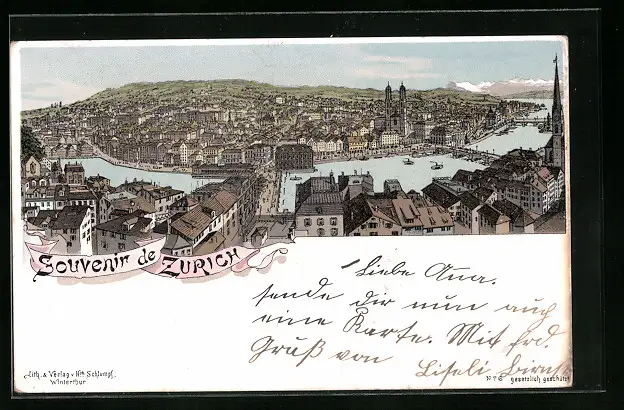 Souvenir de ZÜRICH
Liebe Ana.
sende dir nun auch
eine Karte. Mit frd.
Gruß von
Liseli
Lith. & Verlag v. Hch. Schlumpf,
Winterthur
Nº 6 gesetzlich geschützt